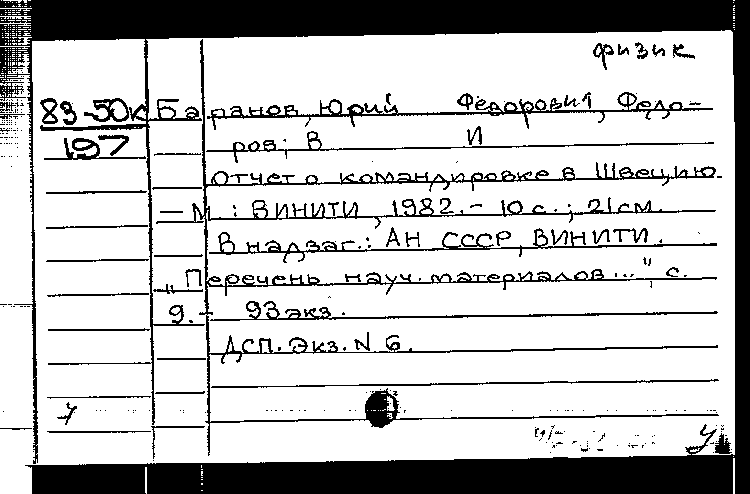 физик
83-50к Баранов, Юрий Фёдорович, Федо-
197 ров, В И
Отчет о командировке в Швецию.
— М : ВИНИТИ, 1982. - 10 с. ; 21 см.
В надзаг.: АН СССР, ВИНИТИ.
„Перечень науч. материалов...", с.
9. - 93 экз.
ДСП. Экз. N 6.
7
у